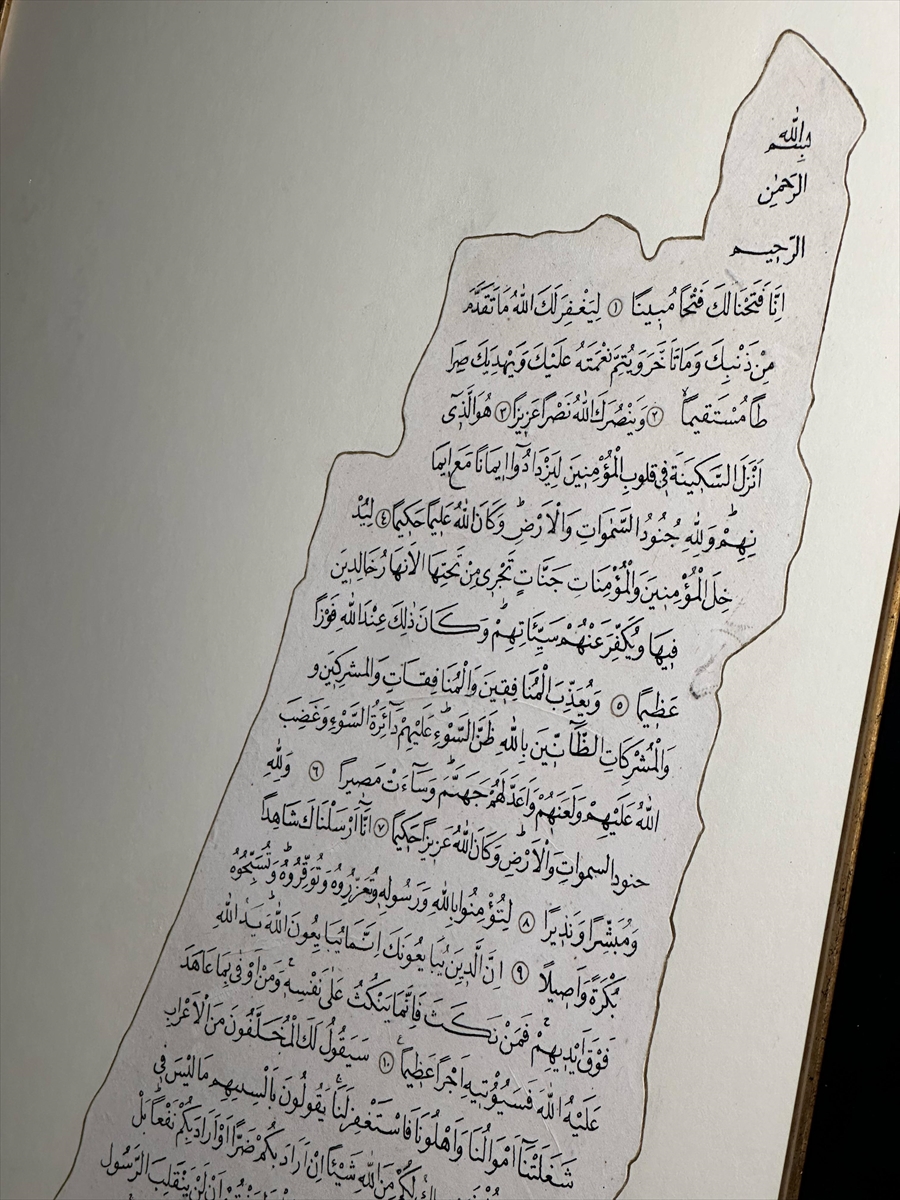 بسم الله
الرحمن
الرحيم
اِنَّا فَتَحْنَا لَكَ فَتْحًا مُبِينًا ١ لِيَغْفِرَ لَكَ اللّٰهُ مَا تَقَدَّمَ
مِنْ ذَنْبِكَ وَمَا تَاَخَّرَ وَيُتِمَّ نِعْمَتَهُ عَلَيْكَ وَيَهْدِيَكَ صِرَا
طًا مُسْتَقِيمًا ٢ وَيَنْصُرَكَ اللّٰهُ نَصْرًا عَزِيزًا ٣ هُوَ الَّذِٓى
اَنْزَلَ السَّكِينَةَ فِى قُلُوبِ الْمُؤْمِنِينَ لِيَزْدَادُٓوا اِيمَانًا مَعَ اِيمَا
نِهِمْ وَلِلّٰهِ جُنُودُ السَّمٰوَاتِ وَالْاَرْضِ وَكَانَ اللّٰهُ عَلِيمًا حَكِيمًا ٤ لِيُدْ
خِلَ الْمُؤْمِنِينَ وَالْمُؤْمِنَاتِ جَنَّاتٍ تَجْرِى مِنْ تَحْتِهَا الْاَنْهَارُ خَالِدِينَ
فِيهَا وَيُكَفِّرَ عَنْهُمْ سَيِّئَاتِهِمْ وَكَانَ ذٰلِكَ عِنْدَ اللّٰهِ فَوْزًا
عَظِيمًا ٥ وَيُعَذِّبَ الْمُنَافِقِينَ وَالْمُنَافِقَاتِ وَالْمُشْرِكِينَ و
وَالْمُشْرِكَاتِ الظَّٓانِّينَ بِاللّٰهِ ظَنَّ السَّوْءِ عَلَيْهِمْ دَٓائِرَةُ السَّوْءِ وَغَضِبَ
اللّٰهُ عَلَيْهِمْ وَلَعَنَهُمْ وَاَعَدَّ لَهُمْ جَهَنَّمَ وَسَٓاءَتْ مَصِيرًا ٦ وَلِلّٰهِ
جنود السموات وَالْاَرْضِ وَكَانَ اللّٰهُ عَزِيزًا حَكِيمًا ٧ اِنَّٓا اَرْسَلْنَاكَ شَاهِدًا
وَمُبَشِّرًا وَنَذِيرًا ٨ لِتُؤْمِنُوا بِاللّٰهِ وَرَسُولِهِ وَتُعَزِّرُوهُ وَتُوَقِّرُوهُ وَتُسَبِّحُوهُ
بُكْرَةً وَاَصِيلًا ٩ اِنَّ الَّذِينَ يُبَايِعُونَكَ اِنَّمَا يُبَايِعُونَ اللّٰهَ يَدُ اللّٰهِ
فَوْقَ اَيْدِيهِمْ فَمَنْ نَكَثَ فَاِنَّمَا يَنْكُثُ عَلٰى نَفْسِهِ وَمَنْ اَوْفٰى بِمَا عَاهَدَ
عَلَيْهُ اللّٰهَ فَسَيُؤْتِيهِ اَجْرًا عَظِيمًا ١٠ سَيَقُولُ لَكَ الْمُخَلَّفُونَ مِنَ الْاَعْرَابِ
شَغَلَتْنَٓا اَمْوَالُنَا وَاَهْلُونَا فَاسْتَغْفِرْ لَنَا يَقُولُونَ بِاَلْسِنَتِهِمْ مَا لَيْسَ فِى
لَكُمْ مِنَ اللّٰهِ شَيْئًا اِنْ اَرَادَ بِكُمْ ضَرًّا اَوْ اَرَادَ بِكُمْ نَفْعًا بَلْ
اَنْ لَنْ يَنْقَلِبَ الرَّسُول